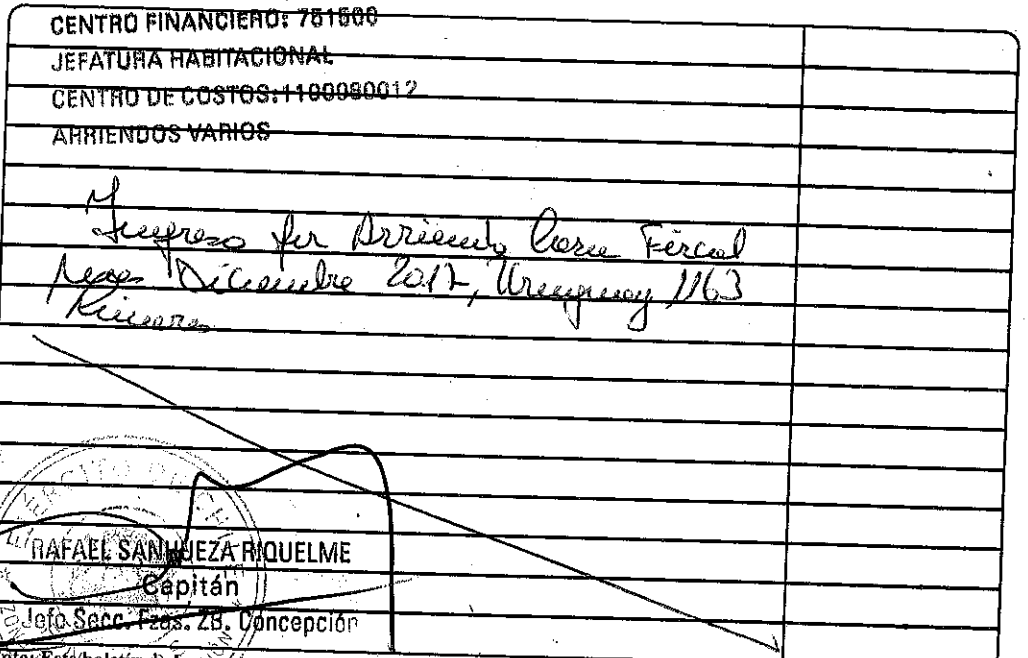 CENTRO FINANCIERO: 751500
JEFATURA HABITACIONAL
CENTRO DE COSTOS: 1100080012
ARRIENDOS VARIOS
Ingreso por Arriendo Casa Fiscal
Diciembre 2012, Uruguay 1163
EJÉRCITO DE CHILE
RAFAEL SANHUEZA RIQUELME
Capitán
Jefe Secc. Fzas. ZB. Concepción